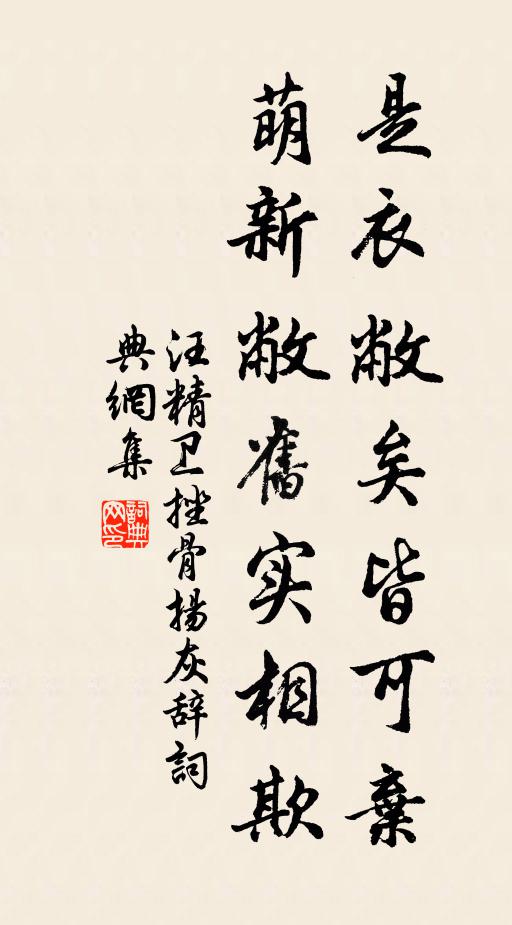 是衣敝矣皆可棄
萌新敝舊实相欺
汪精卫挫骨揚灰辞詞
典網集
詞典
网印